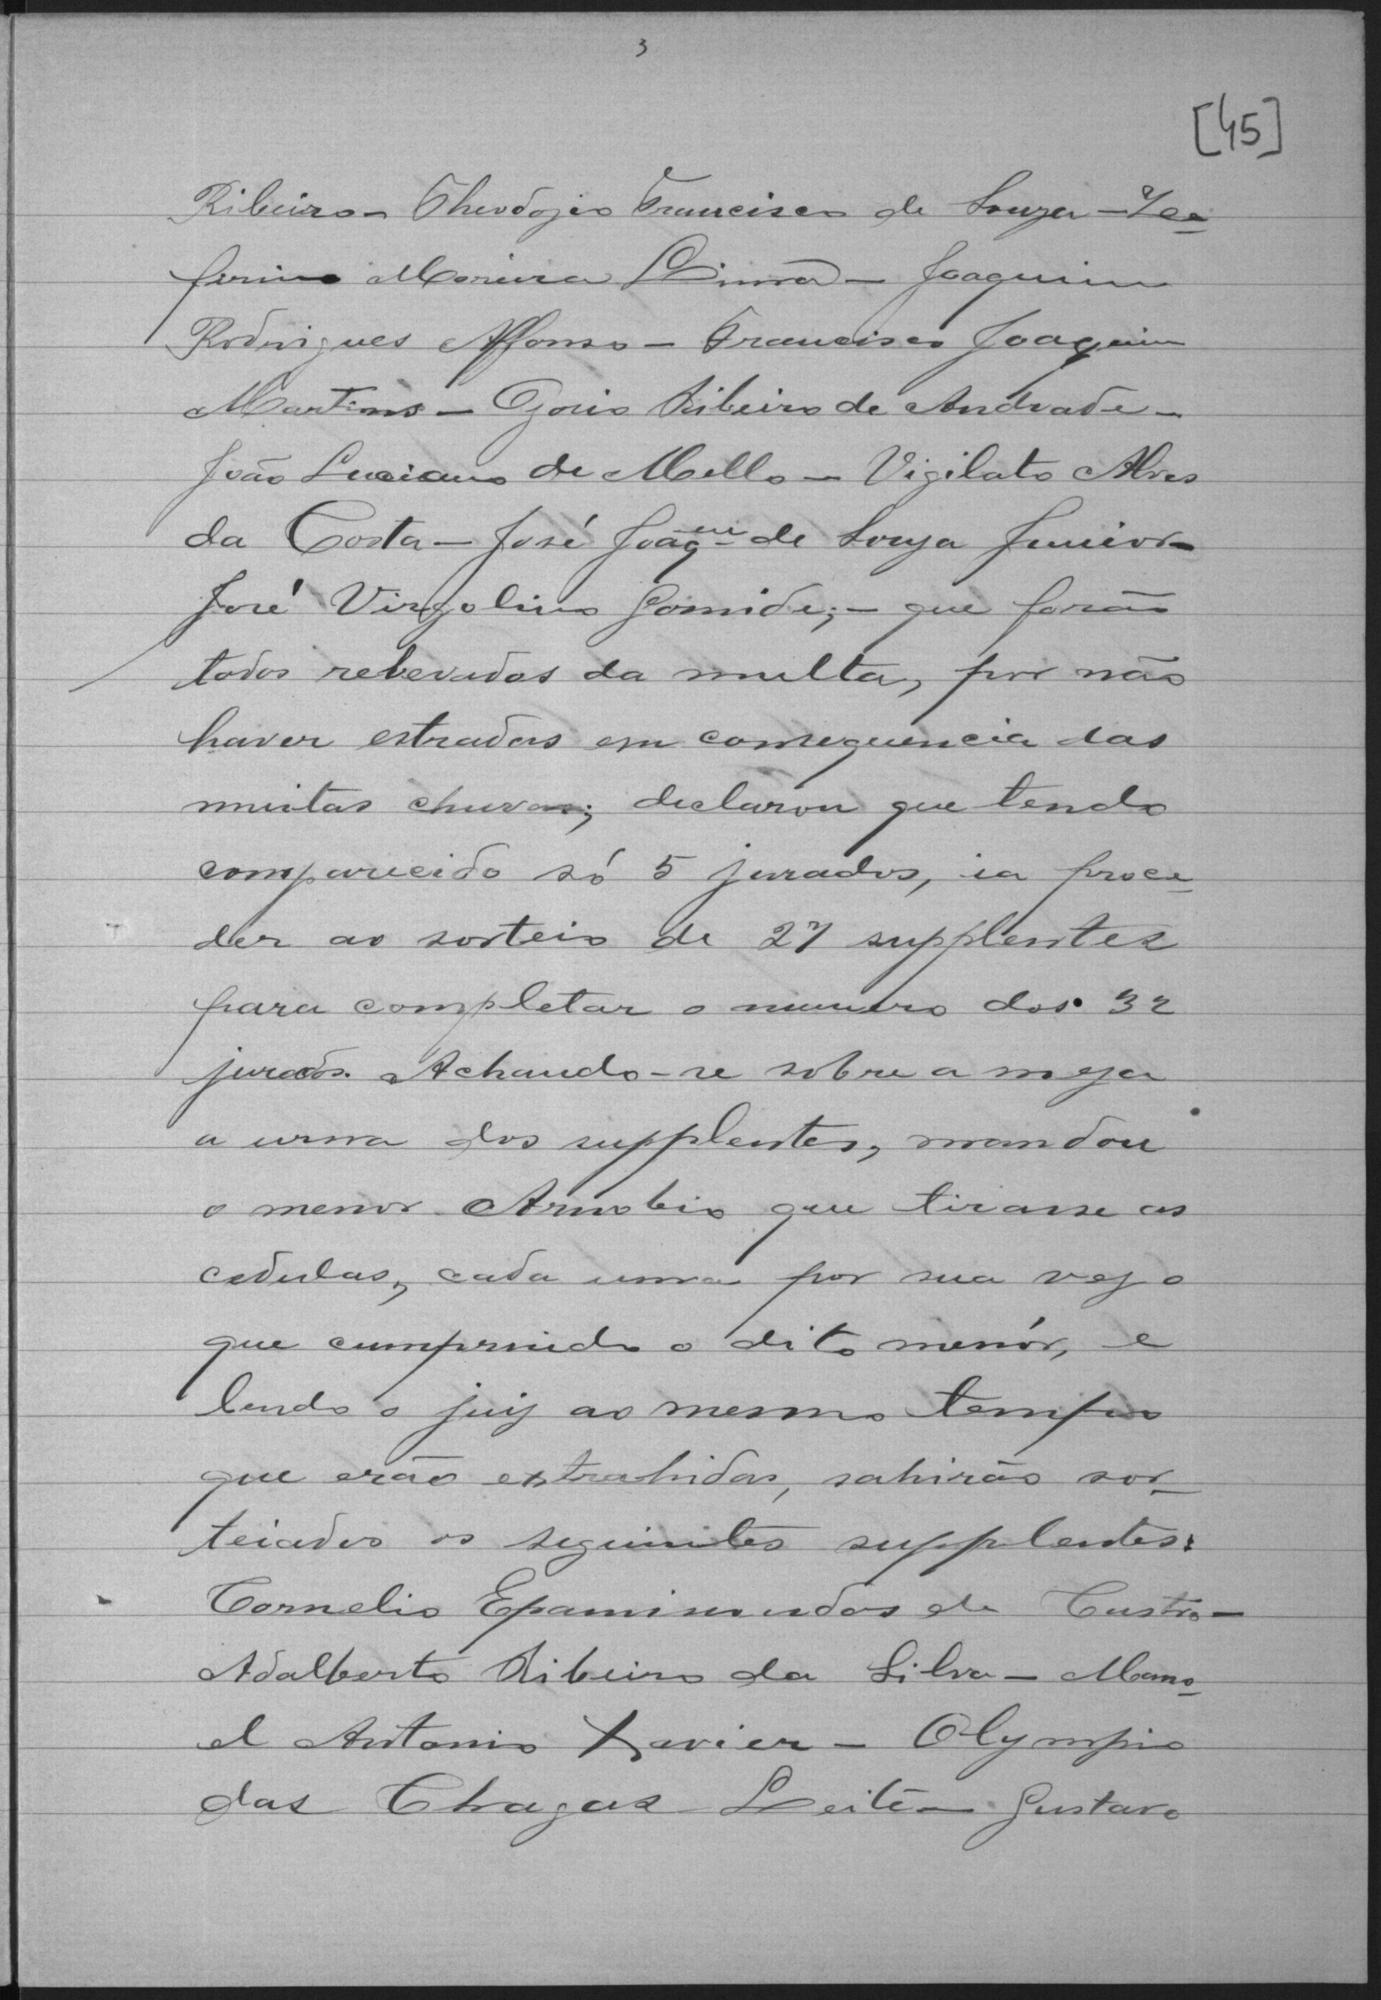 3
[45]
Ribeiro – Theodozio Francisco de Souza – Ze-
ferino Moreira Lima – Joaquim
Rodrigues Affonso – Francisco Joaquim
Martins – Ozorio Ribeiro de Andrade –
João Luciano de Mello – Vigilato Alves
da Costa – José Joaqm de Souza Junior –
José Virgolino Gomide; – que forão
todos relevados da multa, por não
haver estradas em consequencia das
muitas chuvas; declarou que tendo
comparecido só 5 jurados, ia proce-
der ao sorteio de 27 supplentes
para completar o numero dos 32
jurados. Achando-se sobre a meza
a urna dos supplentes, mandou
o menor Arnobio que tirasse as
cedulas, cada uma por sua vez o
que cumprindo o dito menór, e
lendo o juiz ao mesmo tempo
que erão extrahidas, sahirão sor-
teiados os seguintes supplentes:
Cornelio Epaminondas de Castro –
Adalberto Ribeiro da Silva – Mano-
el Antonio Xavier – Olympio
das Chagas Leite – Gustavo